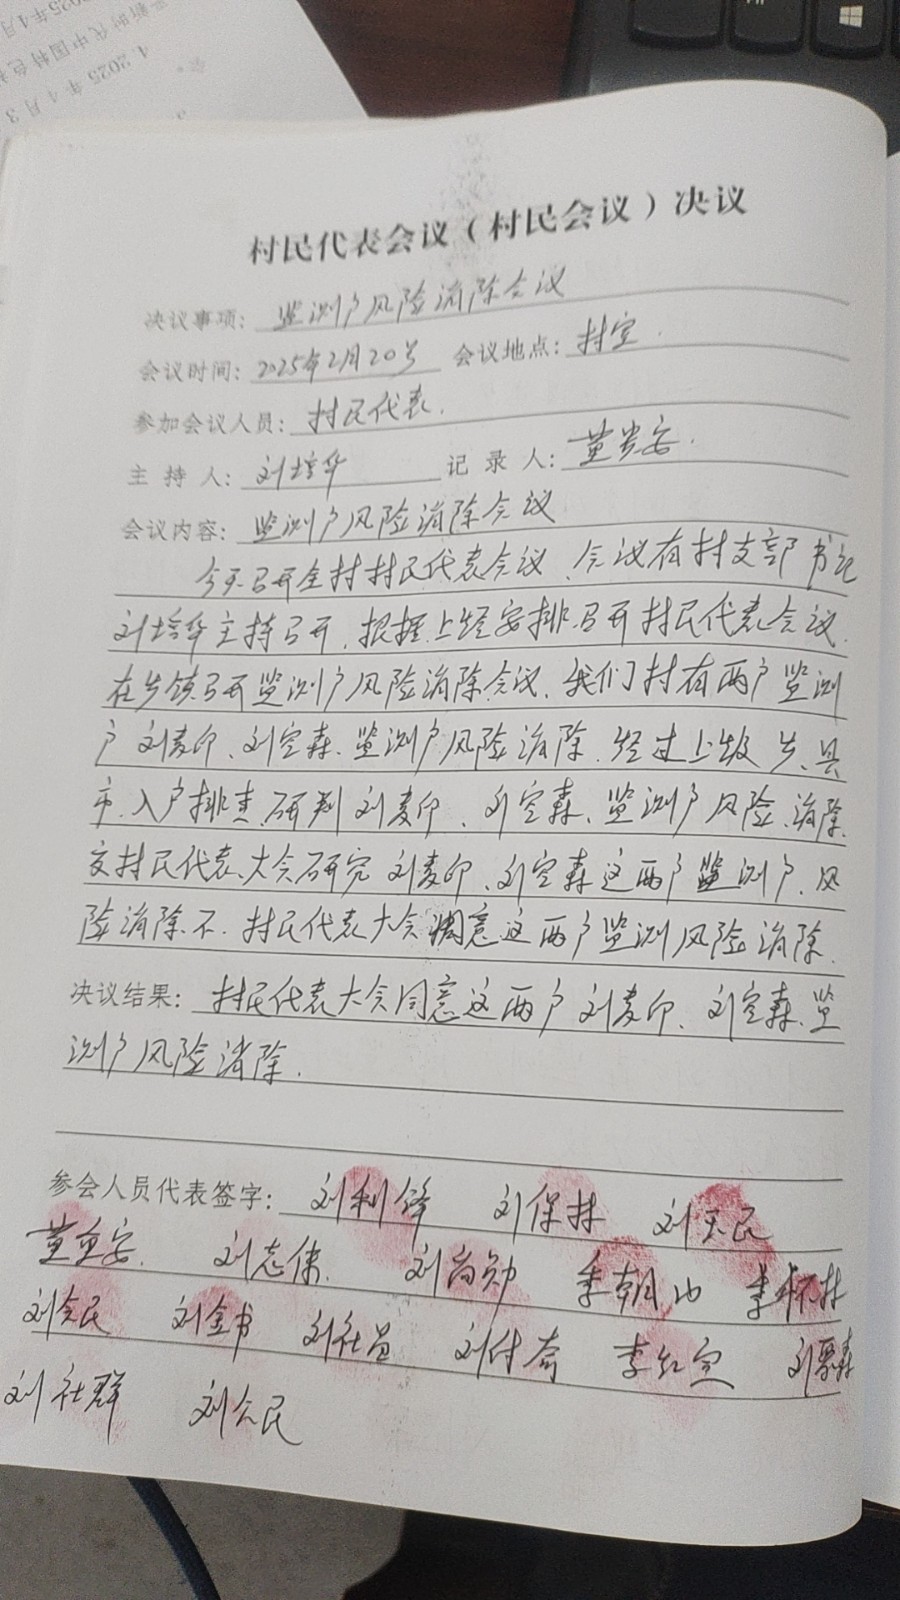 2025年4月
新时代中国特色
4. 2025年4月3
村民代表会议（村民会议）决议
决议事项：监测户风险消除会议
会议时间：2025年2月20号 会议地点：村室.
参加会议人员：村民代表.
主 持 人：刘培华 记 录 人：董贵安.
会议内容：监测户风险消除会议
今天召开全村村民代表会议、会议有村支部书记
刘培华主持召开.根据上级安排召开村民代表会议.
在乡镇召开监测户风险消除会议.我们村有两户监测
户刘麦印、刘空森、监测户风险消除.经过上级乡、县
市、入户排查.研判刘麦印、刘空森、监测户风险、消除.
交村民代表、大会研究刘麦印、刘空森这两户监测户、风
险消除.不.村民代表大会同意这两户监测风险消除.
决议结果：村民代表大会同意这两户刘麦印、刘空森、监
测户风险消除.
参会人员代表签字：刘利锋 刘保林 刘民
董贵安. 刘志伟. 刘尚勋 李朝山 李怀林
刘会民 刘金书 刘社昌 刘付奇 李红宪 刘森
刘社群 刘会民